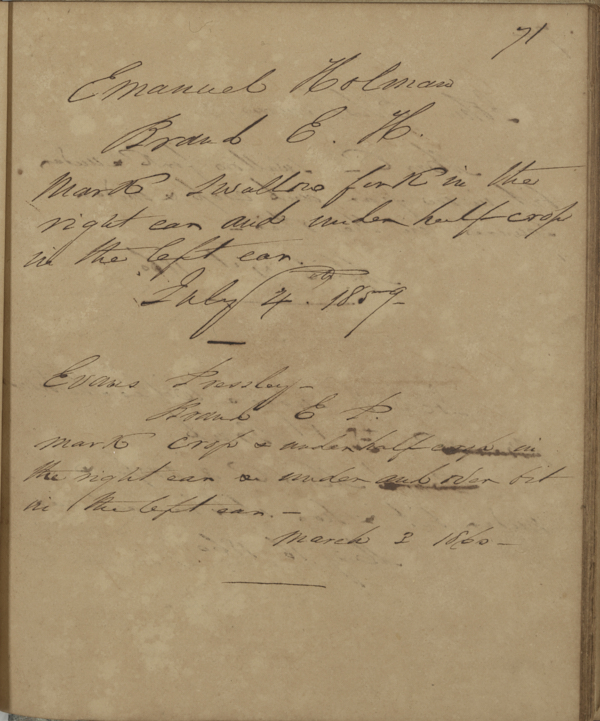 71
Emanuel Holman
Brand E. H.
Mark, Swallow fork in the
right ear and under half crop
in the left ear.
July 4th 1859-
Evans Pressley-
Brand E P.
mark crop & under half crop in
the right ear & under and over bit
in the left ear.-
March 2 1860-